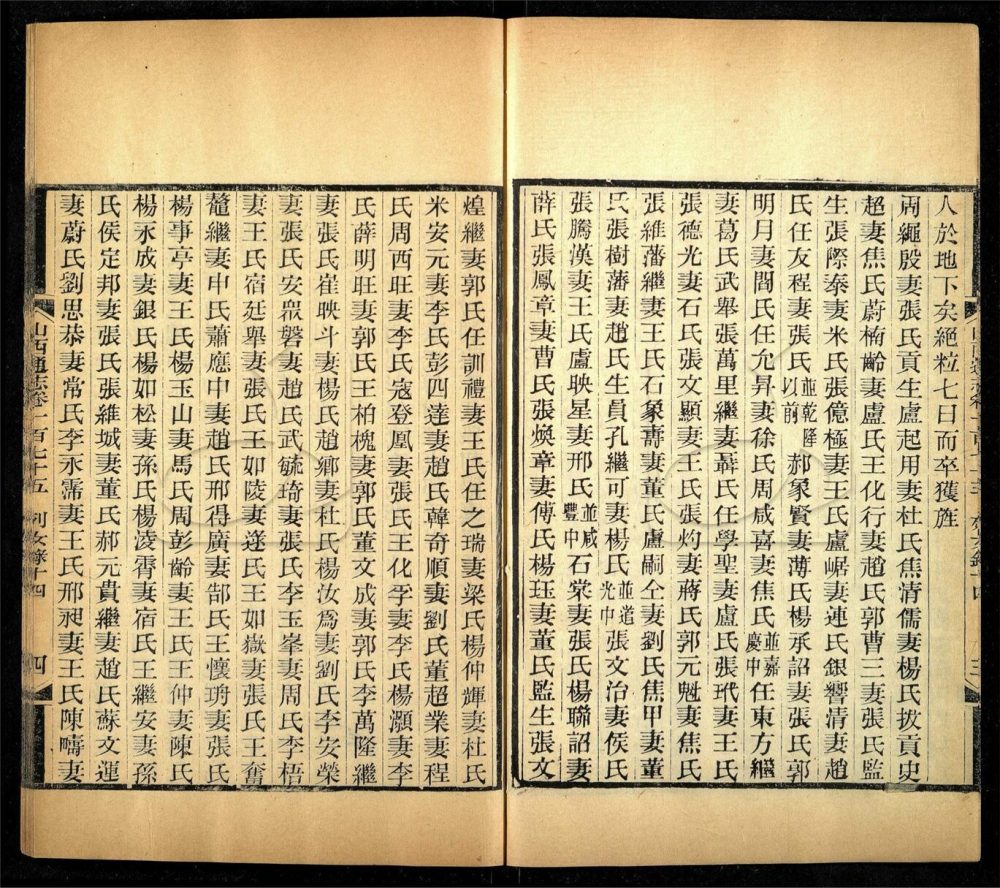 人於地下矣絕粒七日而卒獲旌
兩繩殷妻張氏貢生盧起用妻杜氏焦清儒妻楊氏拔貢史
超妻焦氏蔚楠齡妻盧氏王化行妻趙氏郭曹三妻張氏監
生張際泰妻米氏張億極妻王氏盧崌妻連氏銀響清妻趙
氏任友程妻張氏並乾隆以前郝象賢妻薄氏楊承詔妻張氏郭
明月妻閻氏任允昇妻徐氏周咸喜妻焦氏並嘉慶中任東方繼
妻葛氏武舉張萬里繼妻聶氏任學聖妻盧氏張玳妻王氏
張德光妻石氏張文顯妻王氏張灼妻蔣氏郭元魁妻焦氏
張維藩繼妻王氏石象壽妻董氏盧嗣仝妻劉氏焦甲妻董
氏張樹藩妻趙氏生員孔繼可妻楊氏並道光中張文治妻侯氏
張騰漢妻王氏盧映星妻邢氏並咸豐中石棠妻張氏楊聯詔妻
薛氏張鳳章妻曹氏張煥章妻傅氏楊珏妻董氏監生張文
煌繼妻郭氏任訓禮妻王氏任之瑞妻梁氏楊仲輝妻杜氏
米安元妻李氏彭四達妻趙氏韓奇順妻劉氏董超業妻程
氏周西旺妻李氏寇登凰妻張氏王化孚妻李氏楊灝妻李
氏薛明旺妻郭氏王柏槐妻郭氏董文成妻郭氏李萬隆繼
妻張氏崔映斗妻楊氏趙鄉妻杜氏楊汝爲妻劉氏李安榮
妻張氏安眾磐妻趙氏武毓琦妻張氏李玉峯妻周氏李梧
妻王氏宿廷舉妻張氏王如陵妻逯氏王如嶽妻張氏王奮
鼇繼妻申氏蕭應中妻趙氏邢得廣妻郜氏王懷珘妻張氏
楊事亭妻王氏楊玉山妻馬氏周彭齡妻王氏王仲妻陳氏
楊永成妻銀氏楊如松妻孫氏楊淩霄妻宿氏王繼安妻孫
氏侯定邦妻張氏張維城妻董氏郝元貴繼妻趙氏蘇文運
妻蔚氏劉思恭妻常氏李永霈妻王氏邢昶妻王氏陳疇妻
山西通志卷一百七十五 列女錄十四 四